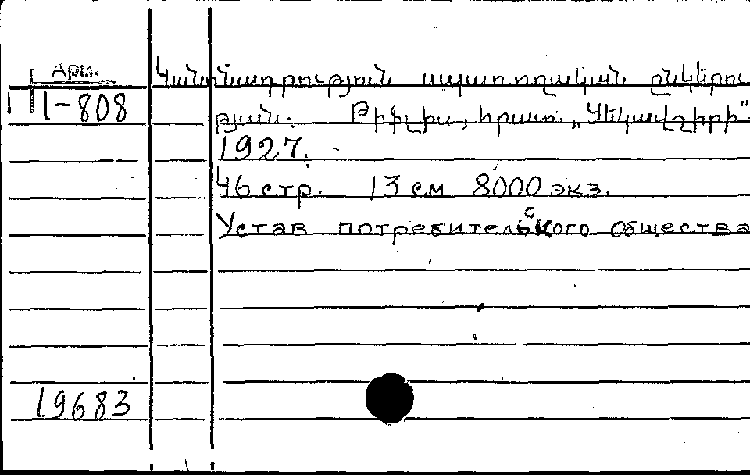 Арм.
Կանոնադրություն սպառողական ընկերու
1-808
թյան. Թիֆլիս, հրատ.
1927.
46 стр. 13 см 8000 экз.
Устав потребительского общества
19683